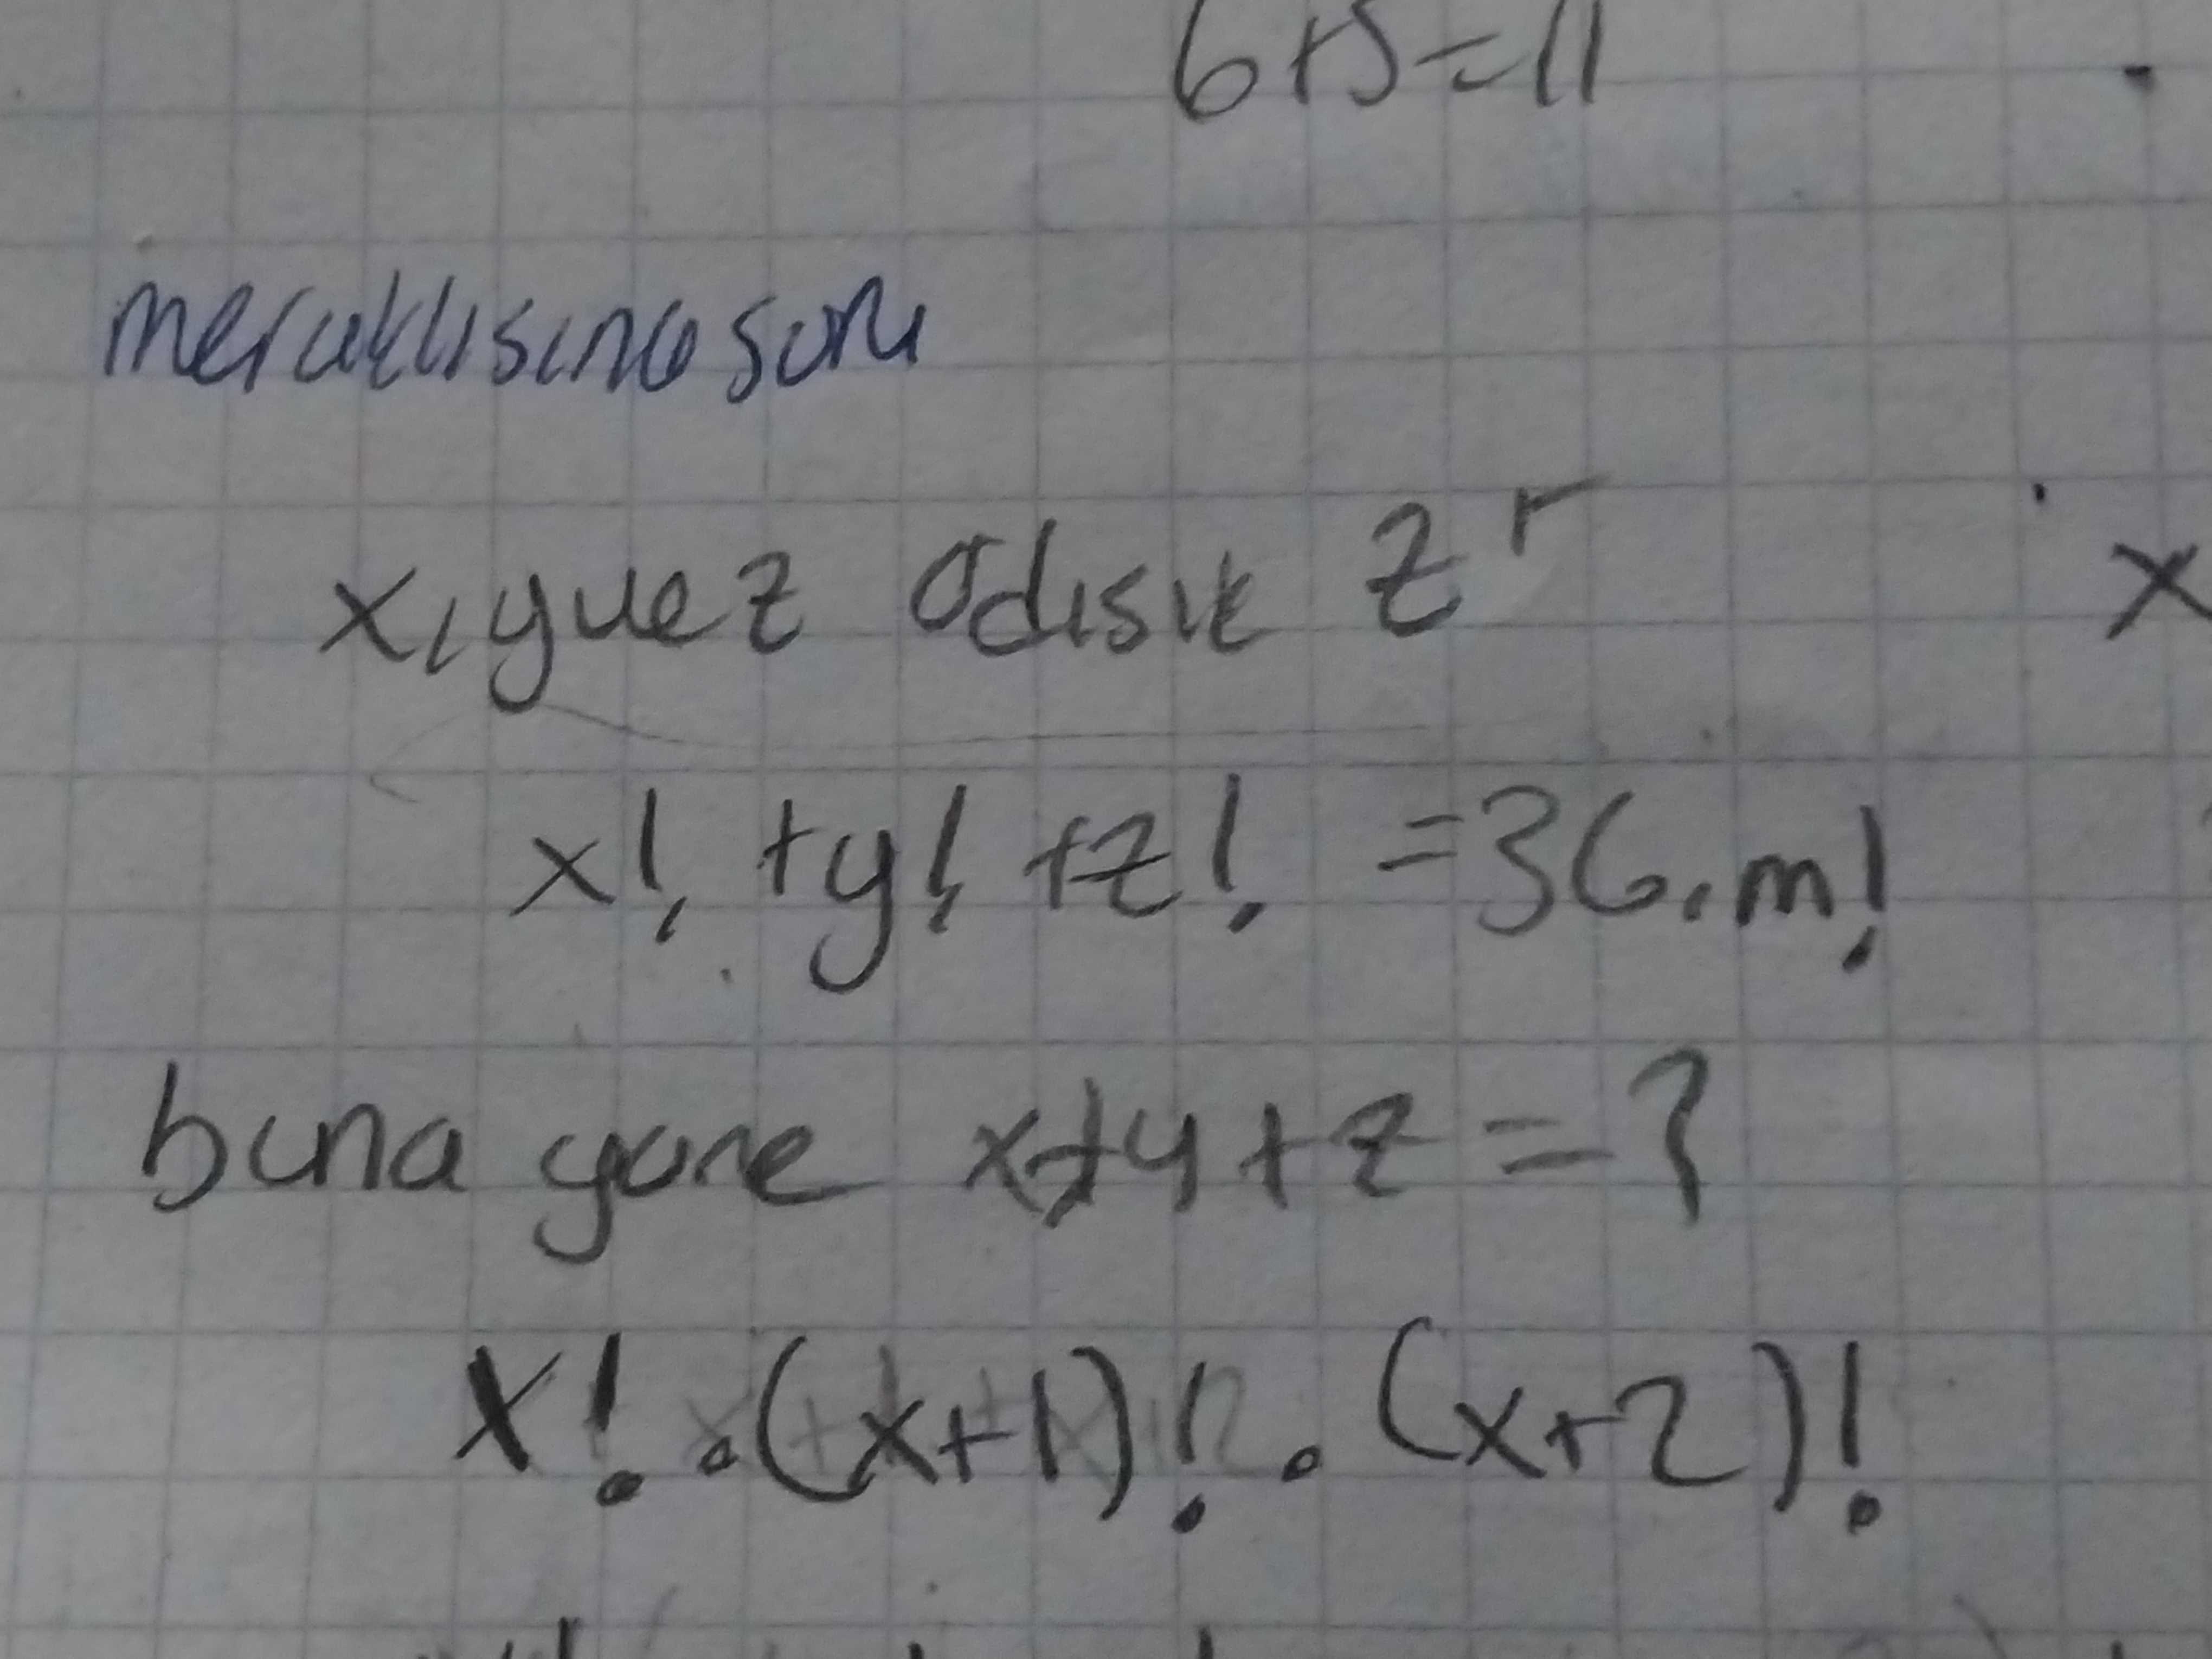 6+5=11
meraklısına soru
x, y ve z ardışık z⁺
x
x! + y! + z! = 36.m!
buna göre x+y+z = ?
x! . (x+1)! . (x+2)!